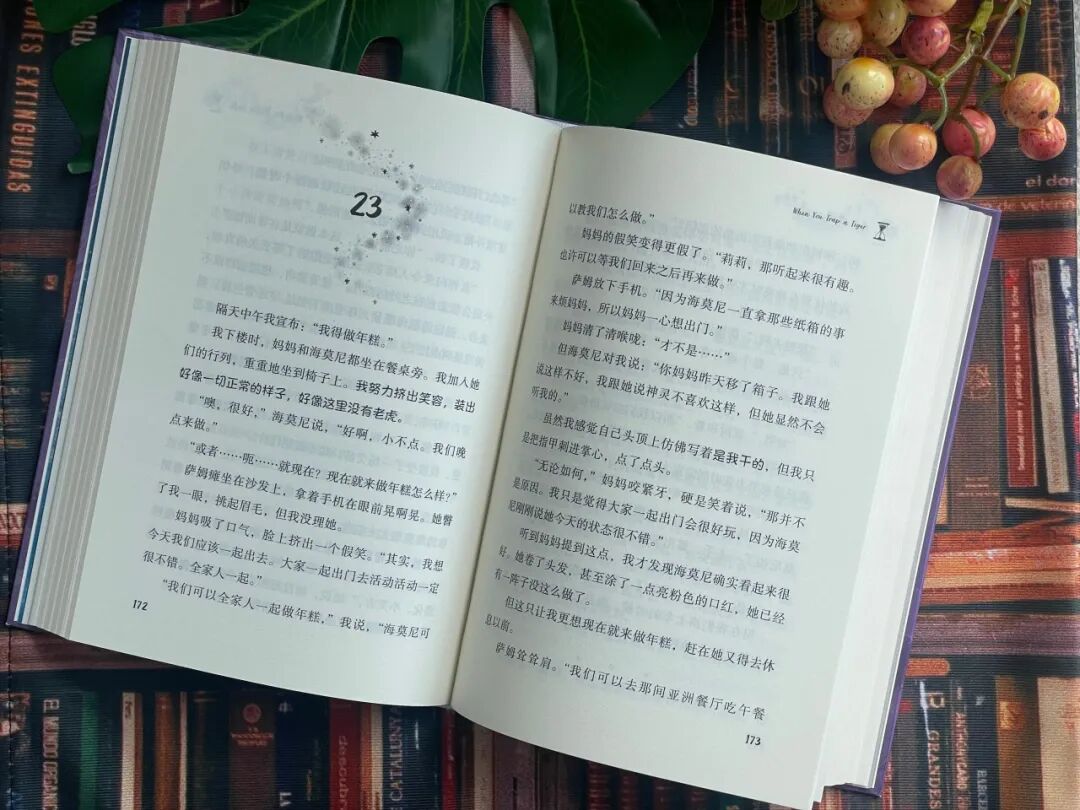 23
隔天中午我宣布：“我得做年糕。”
我下楼时，妈妈和海莫尼都坐在餐桌旁。我加入她
们的行列，重重地坐到椅子上。我努力挤出笑容，装出
好像一切正常的样子，好像这里没有老虎。
“噢，很好，”海莫尼说，“好啊，小不点。我们晚
点来做。”
“或者……呃……就现在？现在就来做年糕怎么样？”
萨姆瘫坐在沙发上，拿着手机在眼前晃啊晃。她瞥
了我一眼，挑起眉毛，但我没理她。
妈妈吸了口气，脸上挤出一个假笑。“其实，我想
今天我们应该一起出去。大家一起出门去活动活动一定
很不错。全家人一起。”
“我们可以全家人一起做年糕，”我说，“海莫尼可
172
When You Trap a Tiger
以教我们怎么做。”
妈妈的假笑变得更假了。“莉莉，那听起来很有趣。
也许可以等我们回来之后再来做。”
萨姆放下手机。“因为海莫尼一直拿那些纸箱的事
来烦妈妈，所以妈妈一心想出门。”
妈妈清了清喉咙：“才不是……”
但海莫尼对我说：“你妈妈昨天移了箱子。我跟她
说这样不好，我跟她说神灵不喜欢这样，但她显然不会
听我的。”
虽然我感觉自己头顶上仿佛写着是我干的，但我只
是把指甲刺进掌心，点了点头。
“无论如何，”妈妈咬紧牙，硬是笑着说，“那并不
是原因。我只是觉得大家一起出门会很好玩，因为海莫
尼刚刚说她今天的状态很不错。”
听到妈妈提到这点，我才发现海莫尼确实看起来很
好。她卷了头发，甚至涂了一点亮粉色的口红，她已经
有一阵子没这么做了。
但这只让我更想现在就来做年糕，赶在她又得去休
息以前。
萨姆耸耸肩。“我们可以去那间亚洲餐厅吃午餐
173
EXTINGUIDAS
el dar
EL MUNDO
CATALUNYA
GRANDES